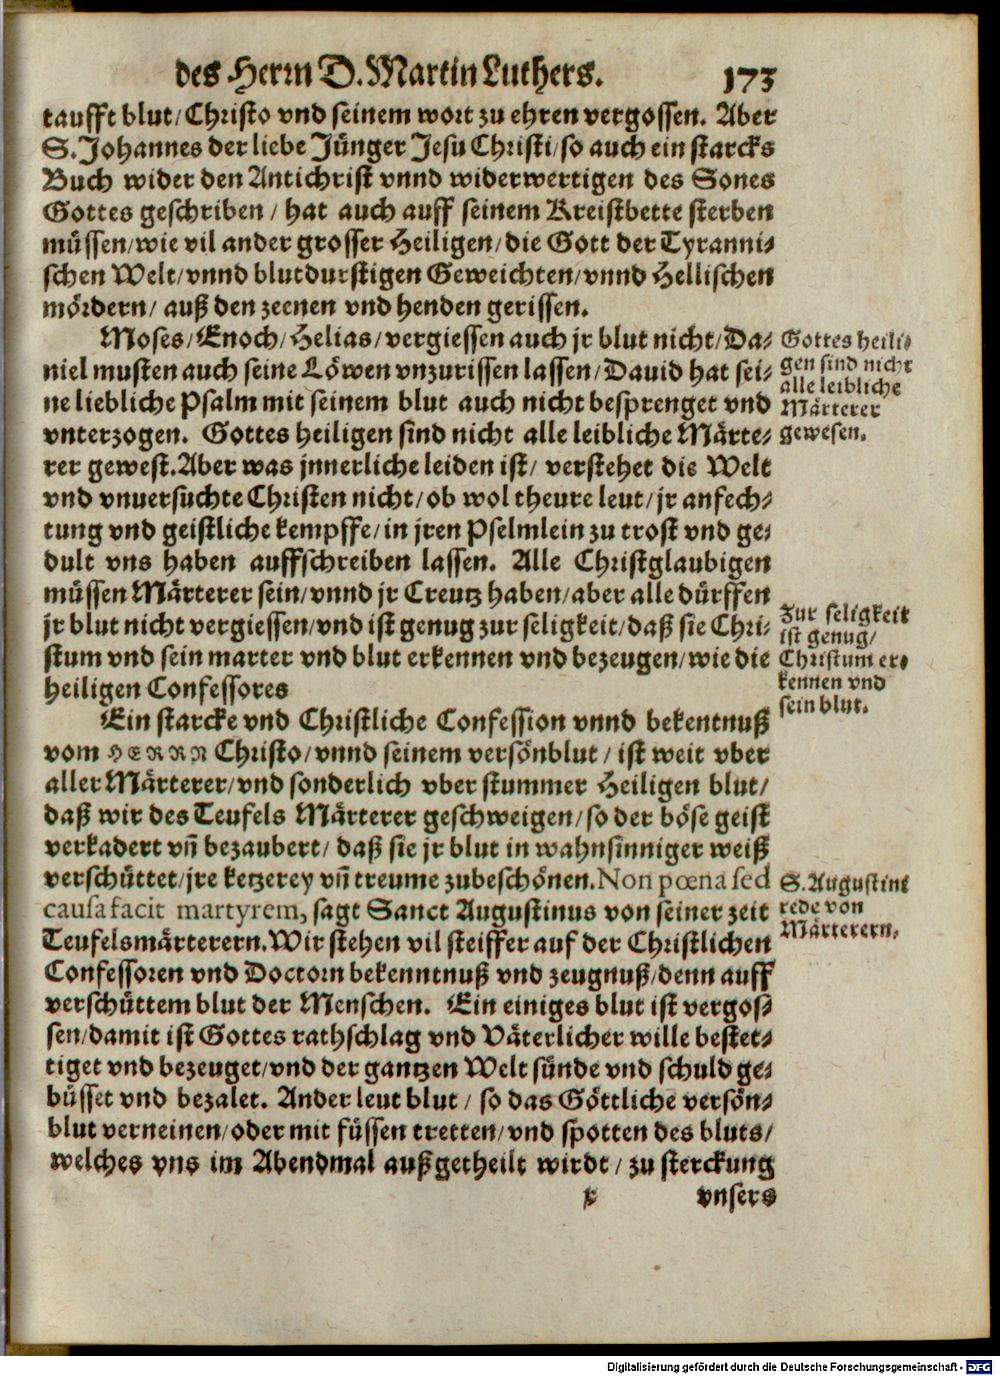 des Herrn D. Martin Luthers. 173
taufft blut/ Christo vnd seinem wort zu ehren vergossen. Aber
S. Johannes der liebe Jünger Jesu Christi/ so auch ein starcks
Buch wider den Antichrist vnnd widerwertigen des Sones
Gottes geschriben / hat auch auff seinem Kreistbette sterben
müssen/ wie vil ander grosser Heiligen/ die Gott der Tyranni-
schen Welt/ vnnd blutdurstigen Geweichten/ vnnd Hellischen
mördern/ auß den zeenen vnd henden gerissen.
Moses/ Enoch/ Helias/ vergiessen auch jr blut nicht/ Da-
niel musten auch seine Löwen vnzurissen lassen/ Dauid hat sei-
ne liebliche Psalm mit seinem blut auch nicht besprenget vnd
vnterzogen. Gottes heiligen sind nicht alle leibliche Märte-
rer gewest. Aber was jnnerliche leiden ist/ verstehet die Welt
vnd vnuersuchte Christen nicht/ ob wol theure leut/ jr anfech-
tung vnd geistliche kempffe/ in jren Pselmlein zu trost vnd ge-
dult vns haben auffschreiben lassen. Alle Christglaubigen
müssen Märterer sein/ vnnd jr Creutz haben/ aber alle dürffen
jr blut nicht vergiessen/ vnd ist genug zur seligkeit/ daß sie Chri-
stum vnd sein marter vnd blut erkennen vnd bezeugen/ wie die
heiligen Confessores
Gottes heili-
gen sind nicht
alle leibliche
Märterer
gewesen.
Zur seligkeit
ist genug/
Christum er-
kennen vnd
sein blut.
Ein starcke vnd Christliche Confession vnnd bekentnuß
vom HERRN Christo/ vnnd seinem versönblut / ist weit vber
aller Märterer/ vnd sonderlich vber stummer Heiligen blut/
daß wir des Teufels Märterer geschweigen/ so der böse geist
verkadert vñ bezaubert/ daß sie jr blut in wahnsinniger weiß
verschüttet/ jre ketzerey vñ treume zubeschönen. Non pœna sed
causa facit martyrem, sagt Sanct Augustinus von seiner zeit
Teufelsmärterern. Wir stehen vil steiffer auf der Christlichen
Confessoren vnd Doctorn bekenntnuß vnd zeugnuß/ denn auff
verschüttem blut der Menschen. Ein einiges blut ist vergos-
sen/ damit ist Gottes rathschlag vnd Väterlicher wille bestet-
tiget vnd bezeuget/ vnd der gantzen Welt sünde vnd schuld ge-
büsset vnd bezalet. Ander leut blut / so das Göttliche versön-
blut verneinen/ oder mit füssen tretten/ vnd spotten des bluts/
welches vns im Abendmal außgetheilt wirdt / zu sterckung
S. Augustini
rede von
Märterern.
x vnsers
Digitalisierung gefördert durch die Deutsche Forschungsgemeinschaft - DFG